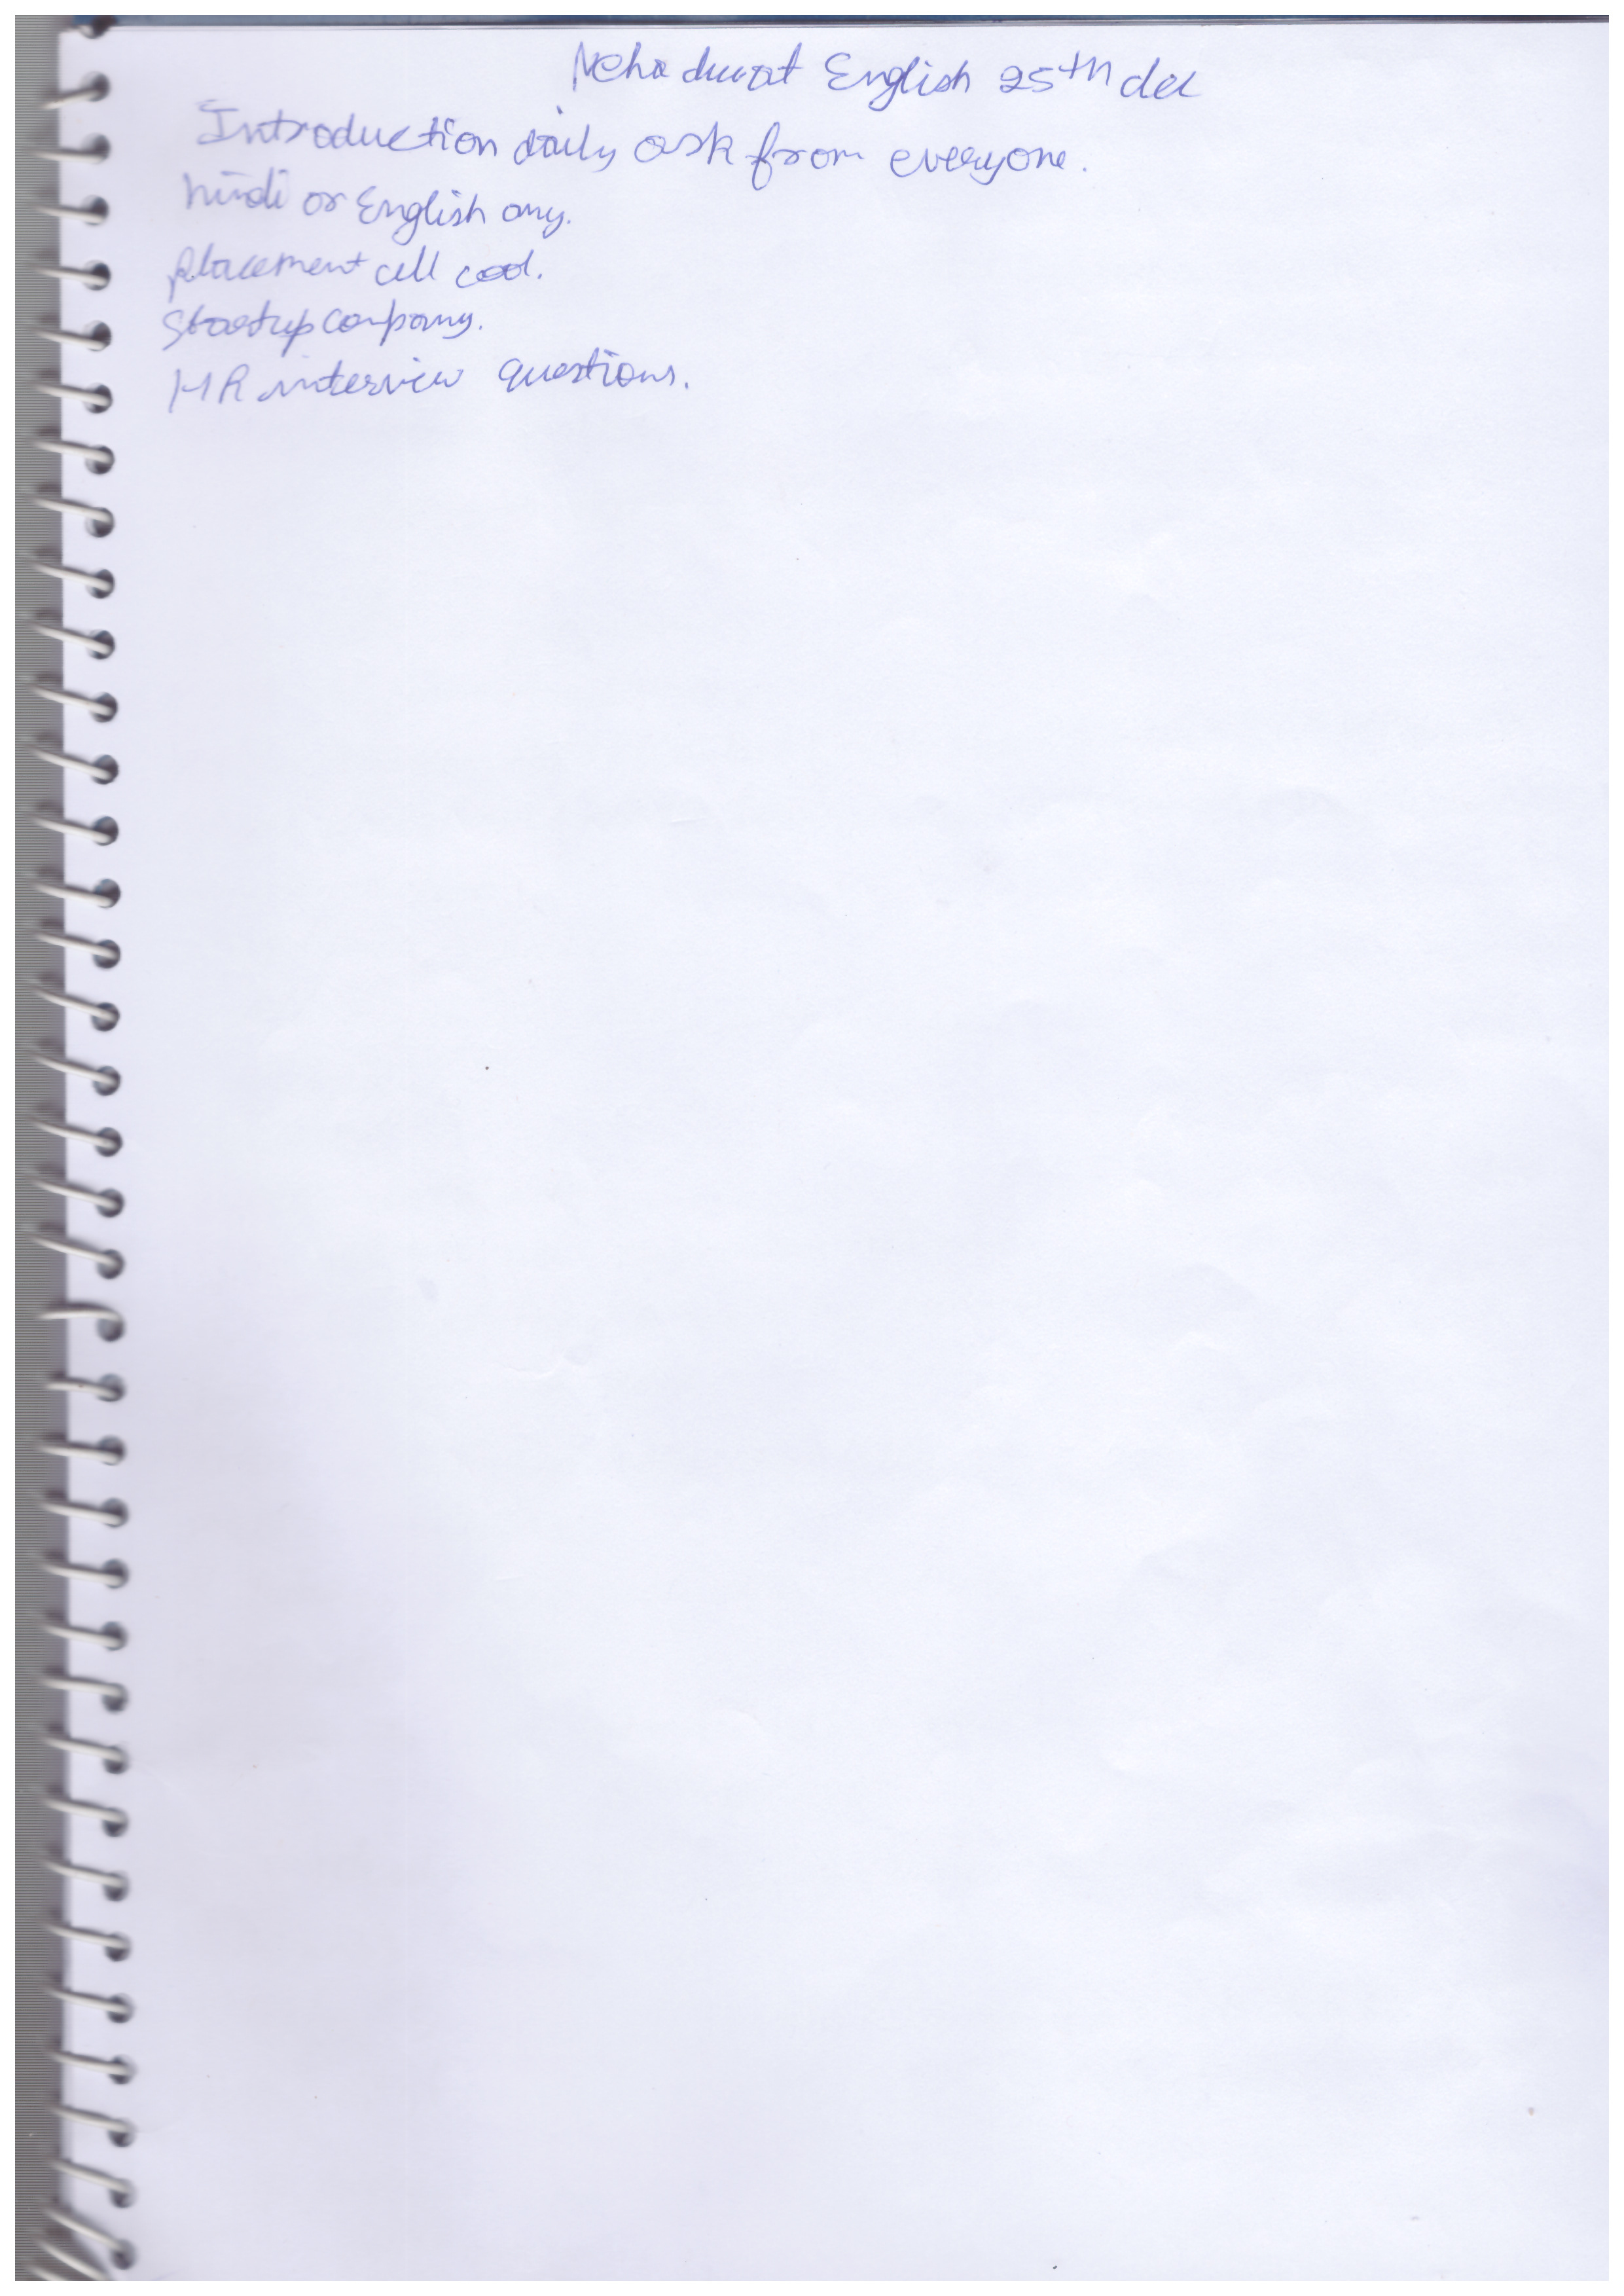 Neha English 25th dec
Introduction daily ask from everyone.
hindi or English any.
placement cell cool.
Startup company.
HR interview questions.